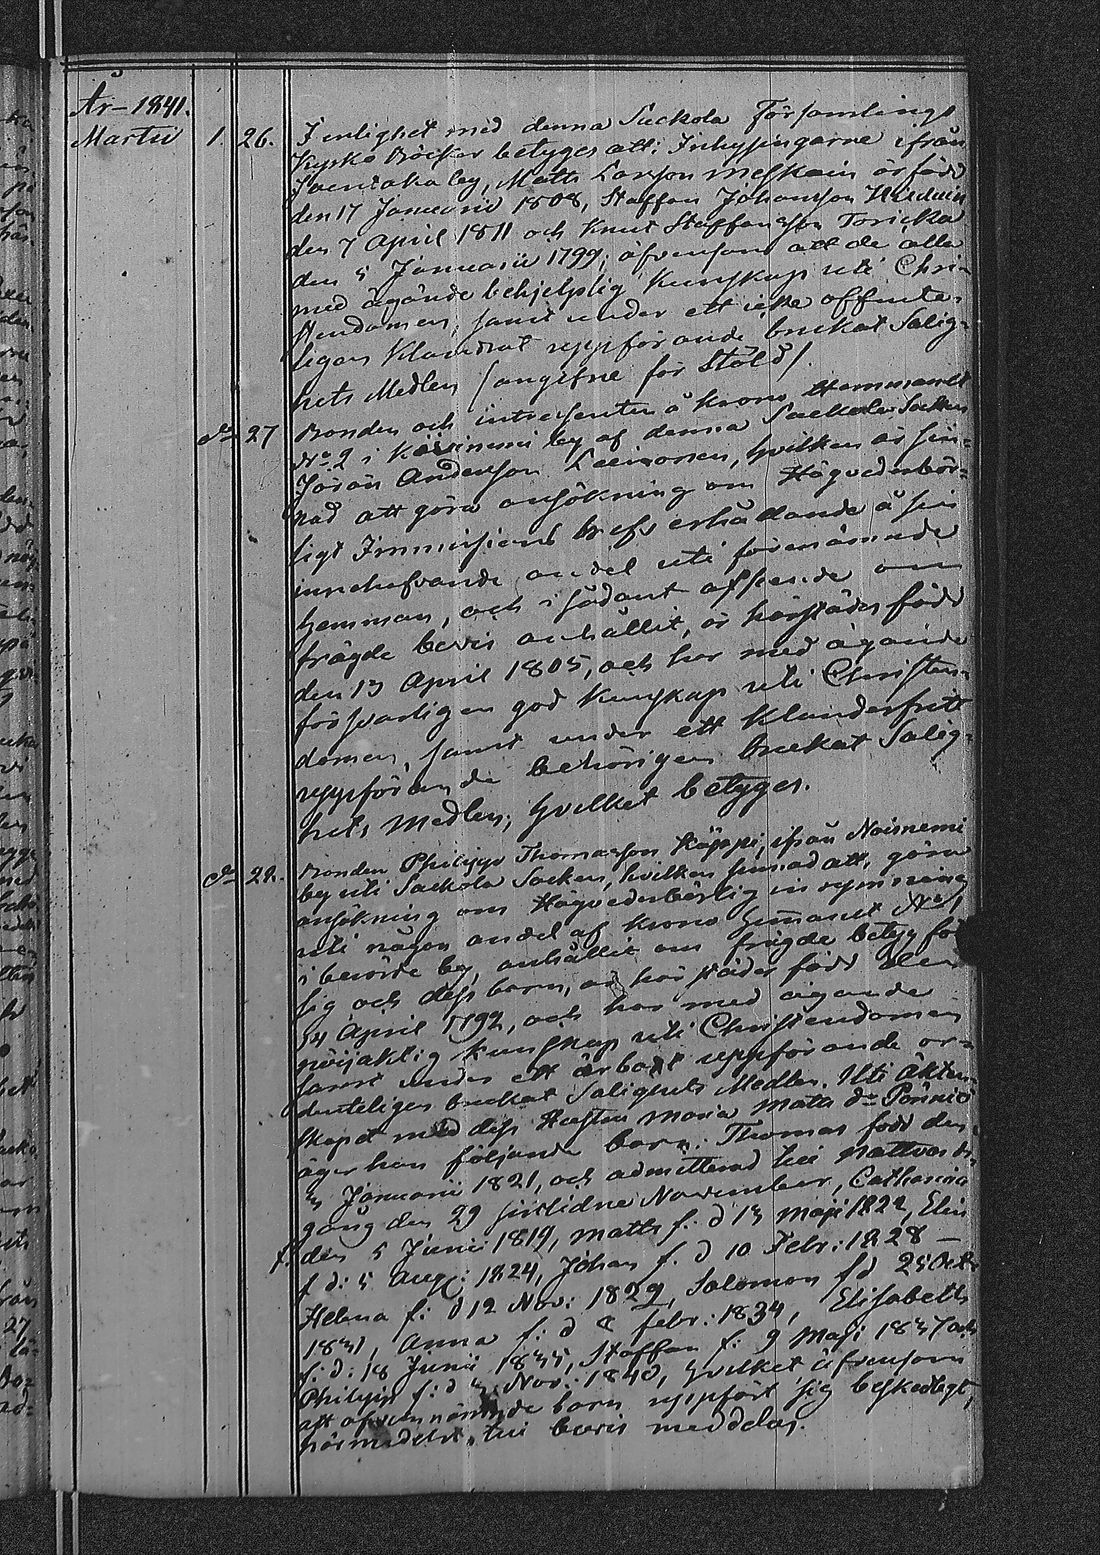 År 1841.
Martii 1. 26. I enlighet med denna Sackola Församlings
Kyrko Böcker betyges att: Inhysingarne ifrån
by, Matts Larsson är född
den 17 Januarii 1808, Staffan Johansson
den 7 April 1811 och Knut Staffansson
den 5 Januarii 1799; äfvensom att de alla
med ägande behjelplig kunskap uti Chri-
stendomen, samt under ett icke offente-
ligen klandrat uppförande brukat Salig-
hets Medlen (angifne för Stöld).
do 27 Bonden och intressenten å Krono Hemmanet
No 2 i by af denna Sackola Socken
Jöran Andersson hvilken är sin-
nad att göra ansökning om Högvederbör-
ligt Immissions brefs erhållande å sin
innehafvande andel uti förenämnde
hemman, och i sådant afseende om
frägde bevis anhållit, är härstädes född
den 13 April 1805, och har med ägande
försvarligen god kunskap uti Christen-
domen, samt under ett klanderfritt
uppförande behörigen brukat Salig-
hets Medlen, hvilket betyges.
do 28. Bonden Philipp Thomasson Käppi, ifrån Noisnemi
by uti Sackola Socken, hvilken sinnad att göra
ansökning om Högvederbörlig inrymning
uti någon andel af Krono Hemmanet No 1
i berörde by, anhållit om frägde betyg för
sig och dess barn, är härstädes född den
14 April 1792, och har med ägande
nöjaktig kunskap uti Christendomen
samt under ett ärbart uppförande or-
denteligen brukat Salighets Medlen. Uti Äkten-
skapet med dess Hustru Maria Matts dr
äger han följande barn: Thomas född den
3 Januarii 1821, och admitterad till Nattvards-
gång den 29 sistlidne November, Catharina
f. den 5 Junii 1819, Matts f. d 13 Maji 1822, Elin
f d: 5 Aug: 1824, Johan f. d 10 Febr: 1828 —
Helena f: d 12 Nov: 1829, Salomon f d 25 Octr
1831, Anna f: d 8 febr: 1834, Elisabeth
f: d: 18 Junii 1835, Staffan f: 9 Maji 1837 och
Philipp f: d 5 Nov: 1840, hvilket äfvensom
att ofvannämnde barn uppfört sig beskedligt,
härmedelst till bevis meddelas.